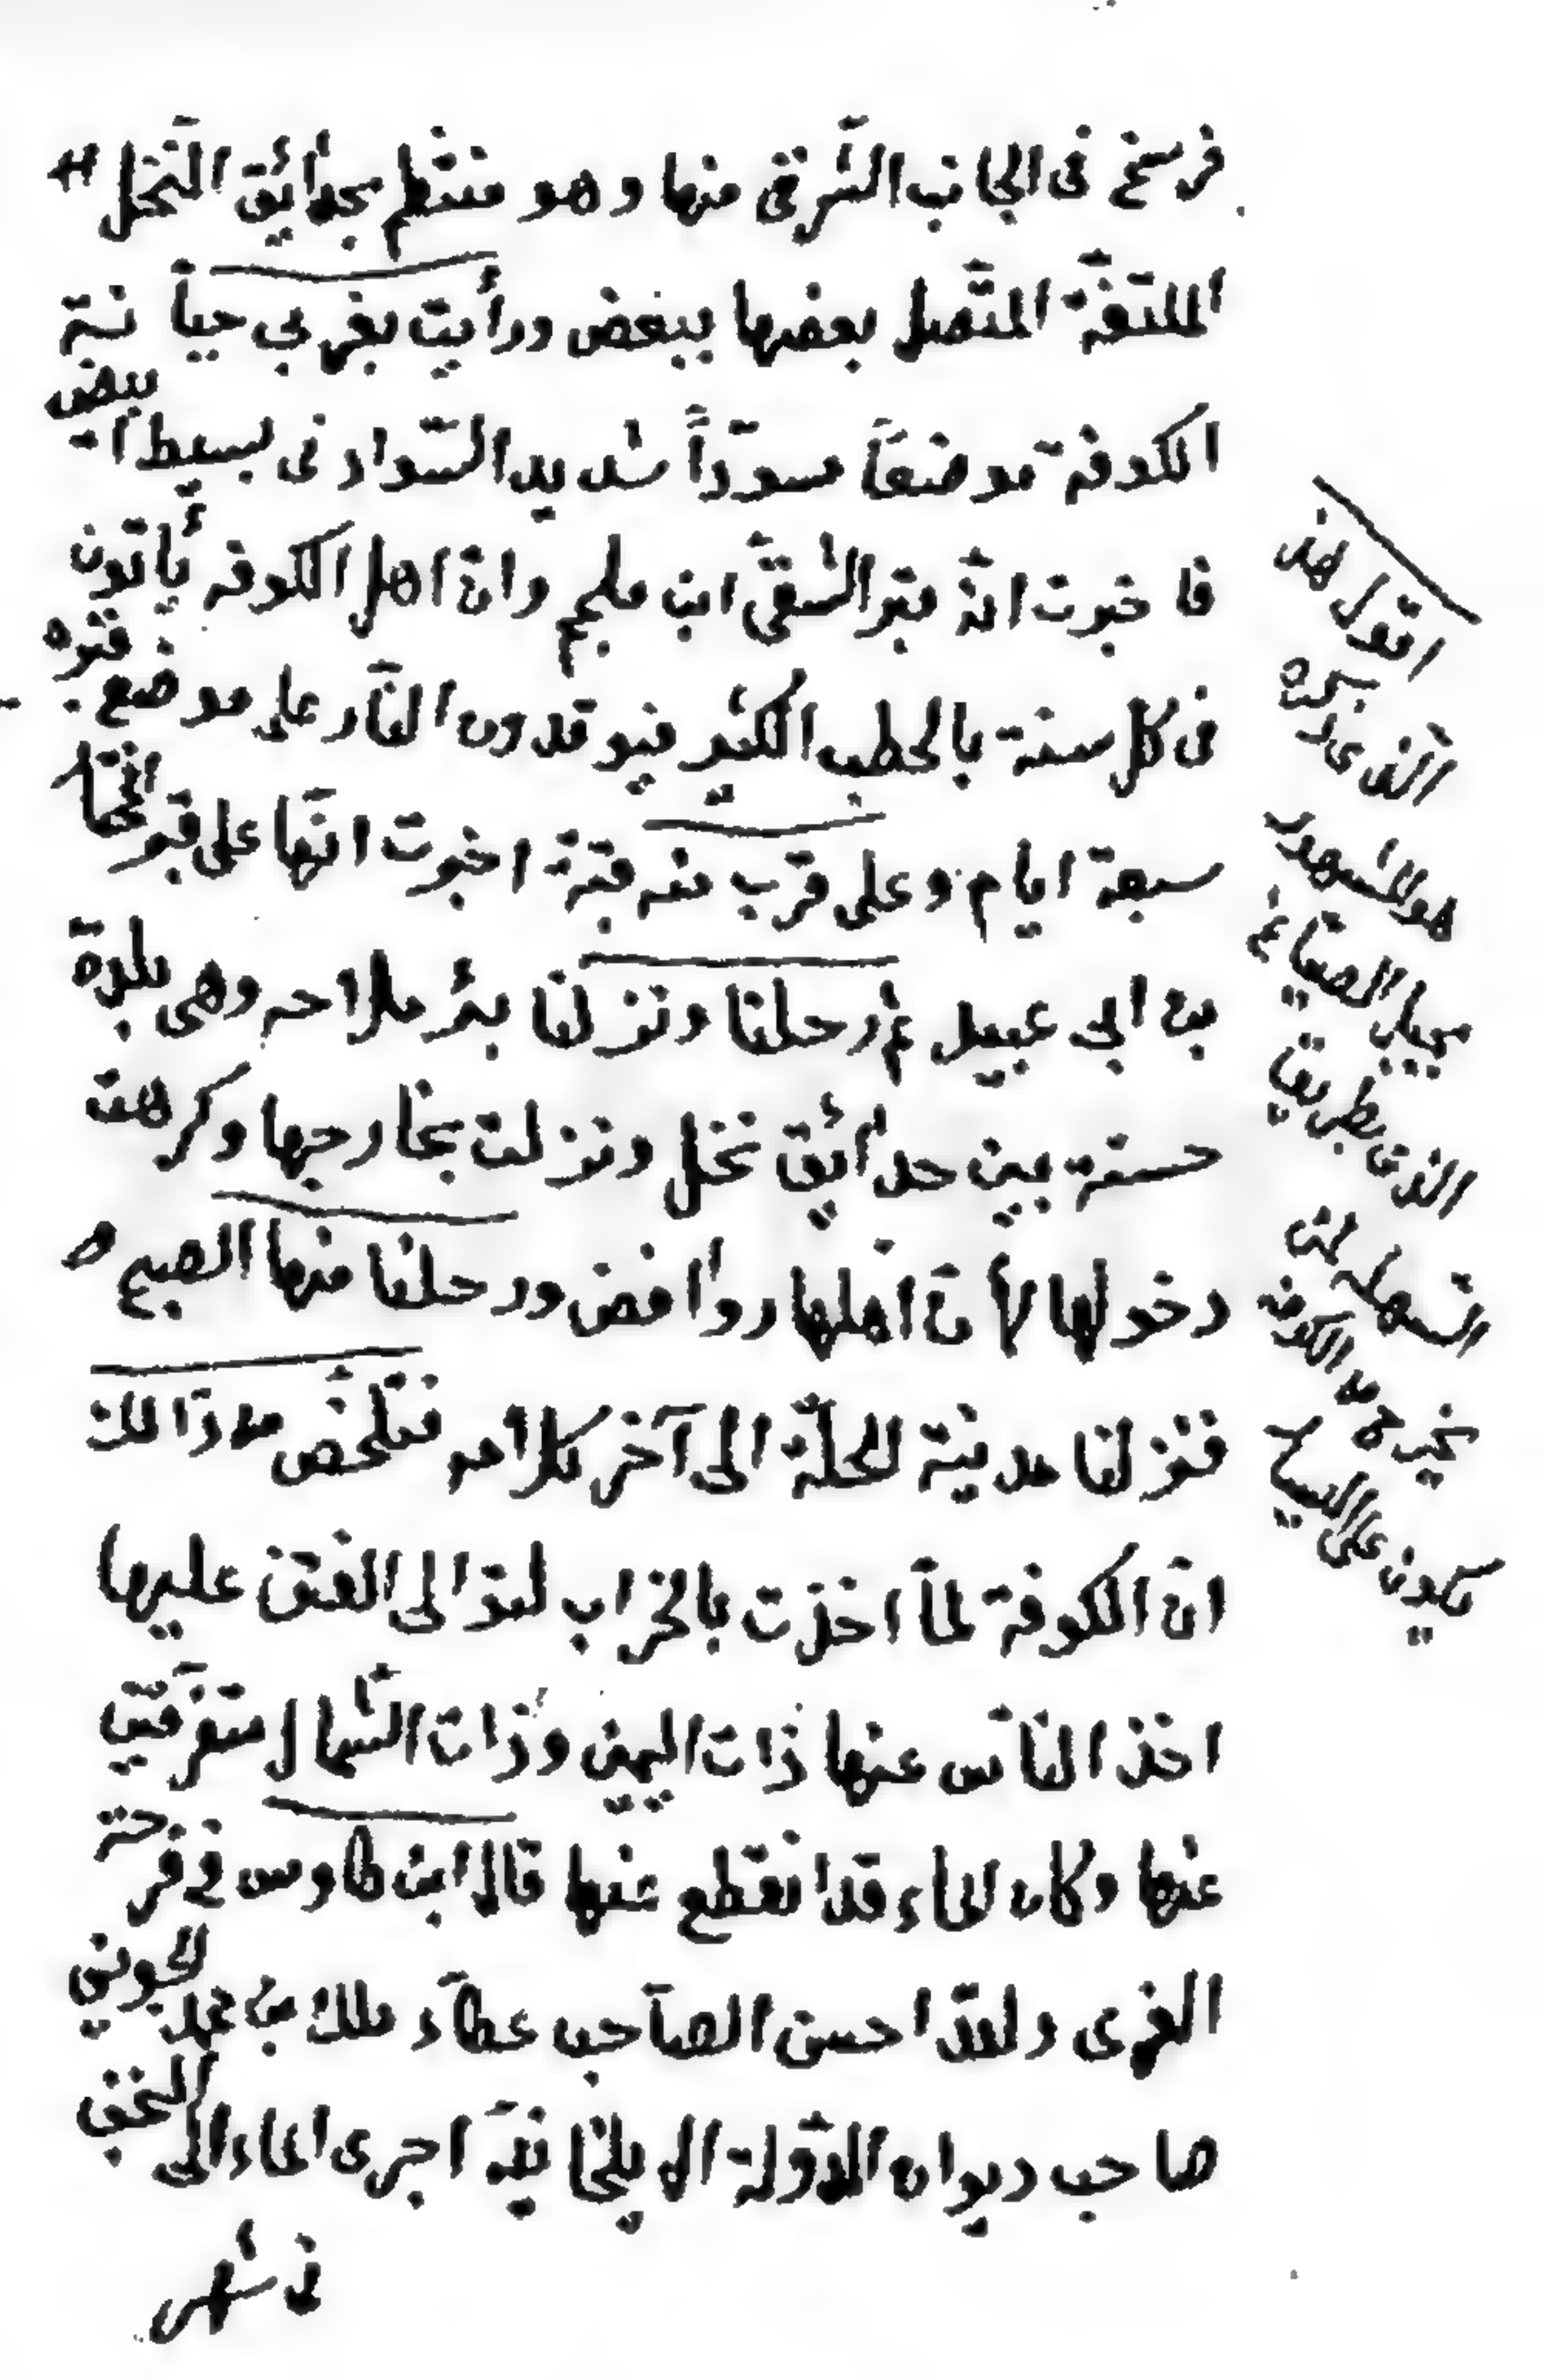 فرسخ فى الجانب الشّرقى منها وهو منتظم بحدائق النّخل
الملتفّة المتّصل بعضها ببعض ورأيت بغربي جبانة
الكوفة موضعاً مسودّاً شديد السّواد فى بسيط ابيض
فاخبرت انّه قبر الشّقىّ ابن ملجم وانّ اهل الكوفه يأتون
فى كل سنة بالحطب الكثير فيوقدون النّار على موضع قبره
سبعة ايام وعلى قرب منه قبّة اخبرت انّها على قبر المختار
بن ابي عبيد ثم رحلنا ونزلنا بئر ملاحه وهى بلدة
حسنة بين حدائق نخل ونزلت بخارجها وكرهت
دخولها لأنّ اهلها روافض ورحلنا منها الصبح
فنزلنا مدينة الحلّة الى آخر كلامه فتلخّص من ذالك
انّ الكوفة لمّا اخذت بالخراب لتوالى الفتن عليها
اخذ النّاس عنها ذات اليمين وذات الشّمال متفرّقين
عنها وكان الماء قد انقطع عنها قال ابن طاوس في فرحة
الغرى ولقد احسن الصّاحب عطاء ملك بن محمد الجوينى
صاحب ديوان الدّولة الايلخانيّة اجرى الماء الى النجف
فى شهر
اقول هذ
الّذى
هو المشهور
بجبل الصيّاغ
الذى بطريق
السهله لمن
يخرج من الكوفه
يكون على اليسار